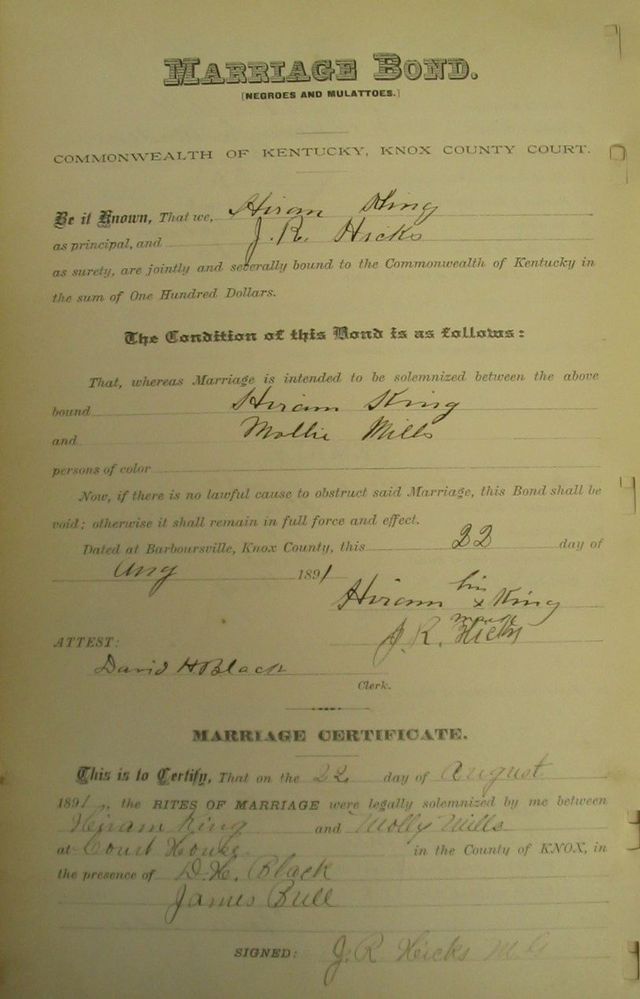 MARRIAGE BOND.
[NEGROES AND MULATTOES.]
COMMONWEALTH OF KENTUCKY, KNOX COUNTY COURT.
Be it Known, That we, Hiram King
as principal, and J. R. Hicks
as surety, are jointly and severally bound to the Commonwealth of Kentucky in
the sum of One Hundred Dollars.
The Condition of this Bond is as follows:
That, whereas Marriage is intended to be solemnized between the above
bound Hiram King
and Mollie Mills
persons of color
Now, if there is no lawful cause to obstruct said Marriage, this Bond shall be
void; otherwise it shall remain in full force and effect.
Dated at Barboursville, Knox County, this 22 day of
Aug 1891
Hiram his x King
mark
J. R. Hicks
ATTEST:
David H Black
Clerk.
MARRIAGE CERTIFICATE.
This is to Certify, That on the 22 day of August
1891, the RITES OF MARRIAGE were legally solemnized by me between
Hiram King and Molly Mills
at Court House in the County of KNOX, in
the presence of D. H. Black
James Bull
SIGNED: J. R Hicks M G